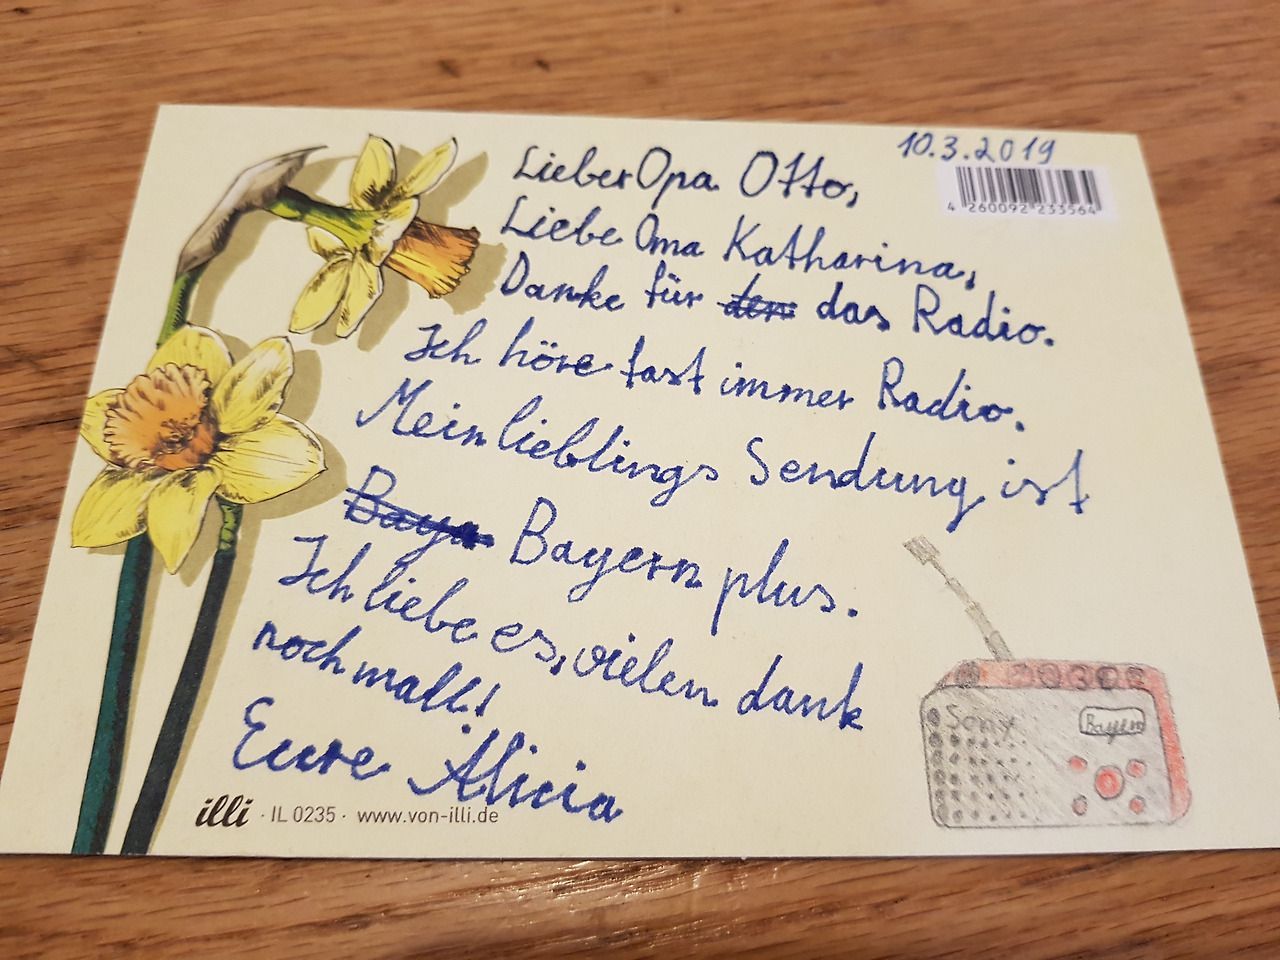 10.3.2019
4 260092 233564
Lieber Opa Otto,
Liebe Oma Katharina,
Danke für den das Radio.
Ich höre fast immer Radio.
Mein lieblings Sendung ist
Baye Bayern plus.
Ich liebe es, vielen dank
noch mall!
Eure Alicia
Sony
Bayern
illi · IL 0235 · www.von-illi.de